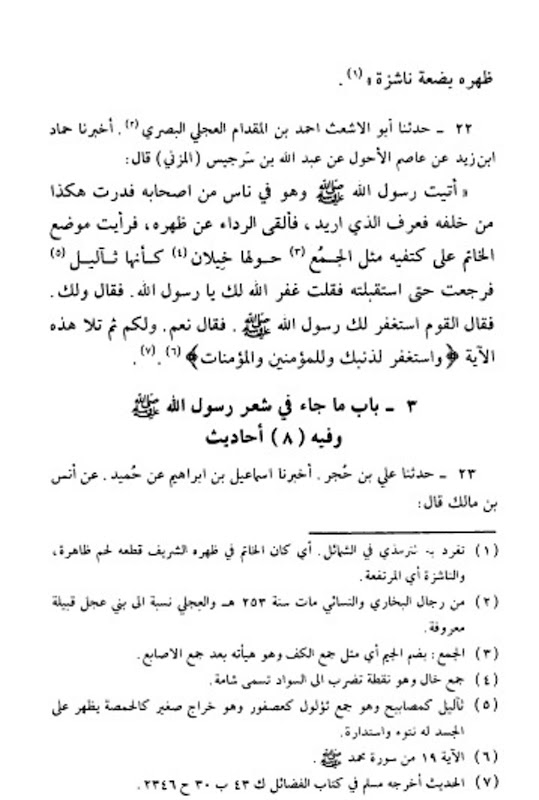 ظهره بضعة ناشزة » (١) .
٢٢ ـ حدثنا أبو الاشعث احمد بن المقدام العجلي البصري (٢) . أخبرنا حماد
ابن زيد عن عاصم الأحول عن عبد الله بن سَرجيس (المزني) قال:
« أتيت رسول الله ﷺ وهو في ناس من اصحابه فدرت هكذا
من خلفه فعرف الذي اريد ، فألقى الرداء عن ظهره ، فرأيت موضع
الخاتم على كتفيه مثل الجمُع (٣) حولها خِيلان (٤) كأنها ثآليل (٥)
فرجعت حتى استقبلته فقلت غفر الله لك يا رسول الله. فقال ولك .
فقال القوم استغفر لك رسول الله ﷺ . فقال نعم. ولكم ثم تلا هذه
الآية ﴿واستغفر لذنبك وللمؤمنين والمؤمنات﴾ (٦) . (٧) .
٣ ـ باب ما جاء في شعر رسول الله ﷺ
وفيه (٨) أحاديث
٢٣ ـ حدثنا علي بن حُجر . أخبرنا اسماعيل بن ابراهيم عن حُميد . عن أنس
بن مالك قال:
(١) تفرد به الترمذي في الشمائل . أي كان الخاتم في ظهره الشريف قطعه لحم ظاهرة ،
والناشزة أي المرتفعة .
(٢) من رجال البخاري والنسائي مات سنة ٢٥٣ هـ والعِجلي نسبة الى بني عجل قبيلة
معروفة .
(٣) الجمع : بضم الجيم أي مثل جمع الكف وهو هيأته بعد جمع الاصابع .
(٤) جمع خال وهو نقطة تضرب الى السواد تسمى شامة .
(٥) ثآليل كمصابيح وهو جمع ثؤلول كعصفور وهو خراج صغير كالحمصة يظهر على
الجسد له نتوء واستدارة .
(٦) الآية ١٩ من سورة محمد ﷺ .
(٧) الحديث أخرجه مسلم في كتاب الفضائل ك ٤٣ ب ٣٠ ح ٢٣٤٦ .